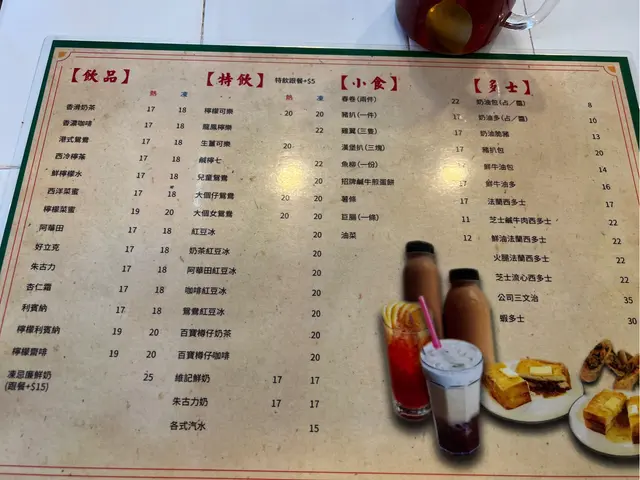 【飲品】
熱 凍
香滑奶茶 17 18
香濃咖啡 17 18
港式鴛鴦 17 18
西冷檸茶 17 18
鮮檸檬水 17 18
西洋菜蜜 17 18
檸檬菜蜜 19 20
阿華田 17 18
好立克 17 18
朱古力 17 18
杏仁霜 17 18
利賓納 17 18
檸檬利賓納 19 20
檸檬齋啡 19 20
凍忌廉鮮奶 25
(跟餐+$15)
【特飲】 特飲跟餐+$5
熱 凍
檸檬可樂 20 20
龍鳳檸樂 22
生薑可樂 20 20
鹹檸七 20
兒童鴛鴦 20
大個仔鴛鴦 20 20
大個女鴛鴦 20 20
紅豆冰 20
奶茶紅豆冰 20
阿華田紅豆冰 20
咖啡紅豆冰 20
鴛鴦紅豆冰 20
百寶樽仔奶茶 20
百寶樽仔咖啡 20
維記鮮奶 17 17
朱古力奶 17 17
各式汽水 15
【小食】
春卷(兩件) 22
豬扒(一件) 17
雞翼(三隻)
漢堡扒(三塊) 17
魚柳(一份) 17
招牌鹹牛煎蛋餅 17
薯條 17
巨腸(一條) 11
油菜 12
【多士】
奶油包(占／醬) 8
奶油多(占／醬) 10
奶油脆豬 13
豬扒包 20
鮮牛油包 14
鮮牛油多 16
法蘭西多 17
芝士鹹牛肉西多士 22
鮮油法蘭西多士 22
火腿法蘭西多士 22
芝士流心西多士 22
公司三文治 35
蝦多士 30